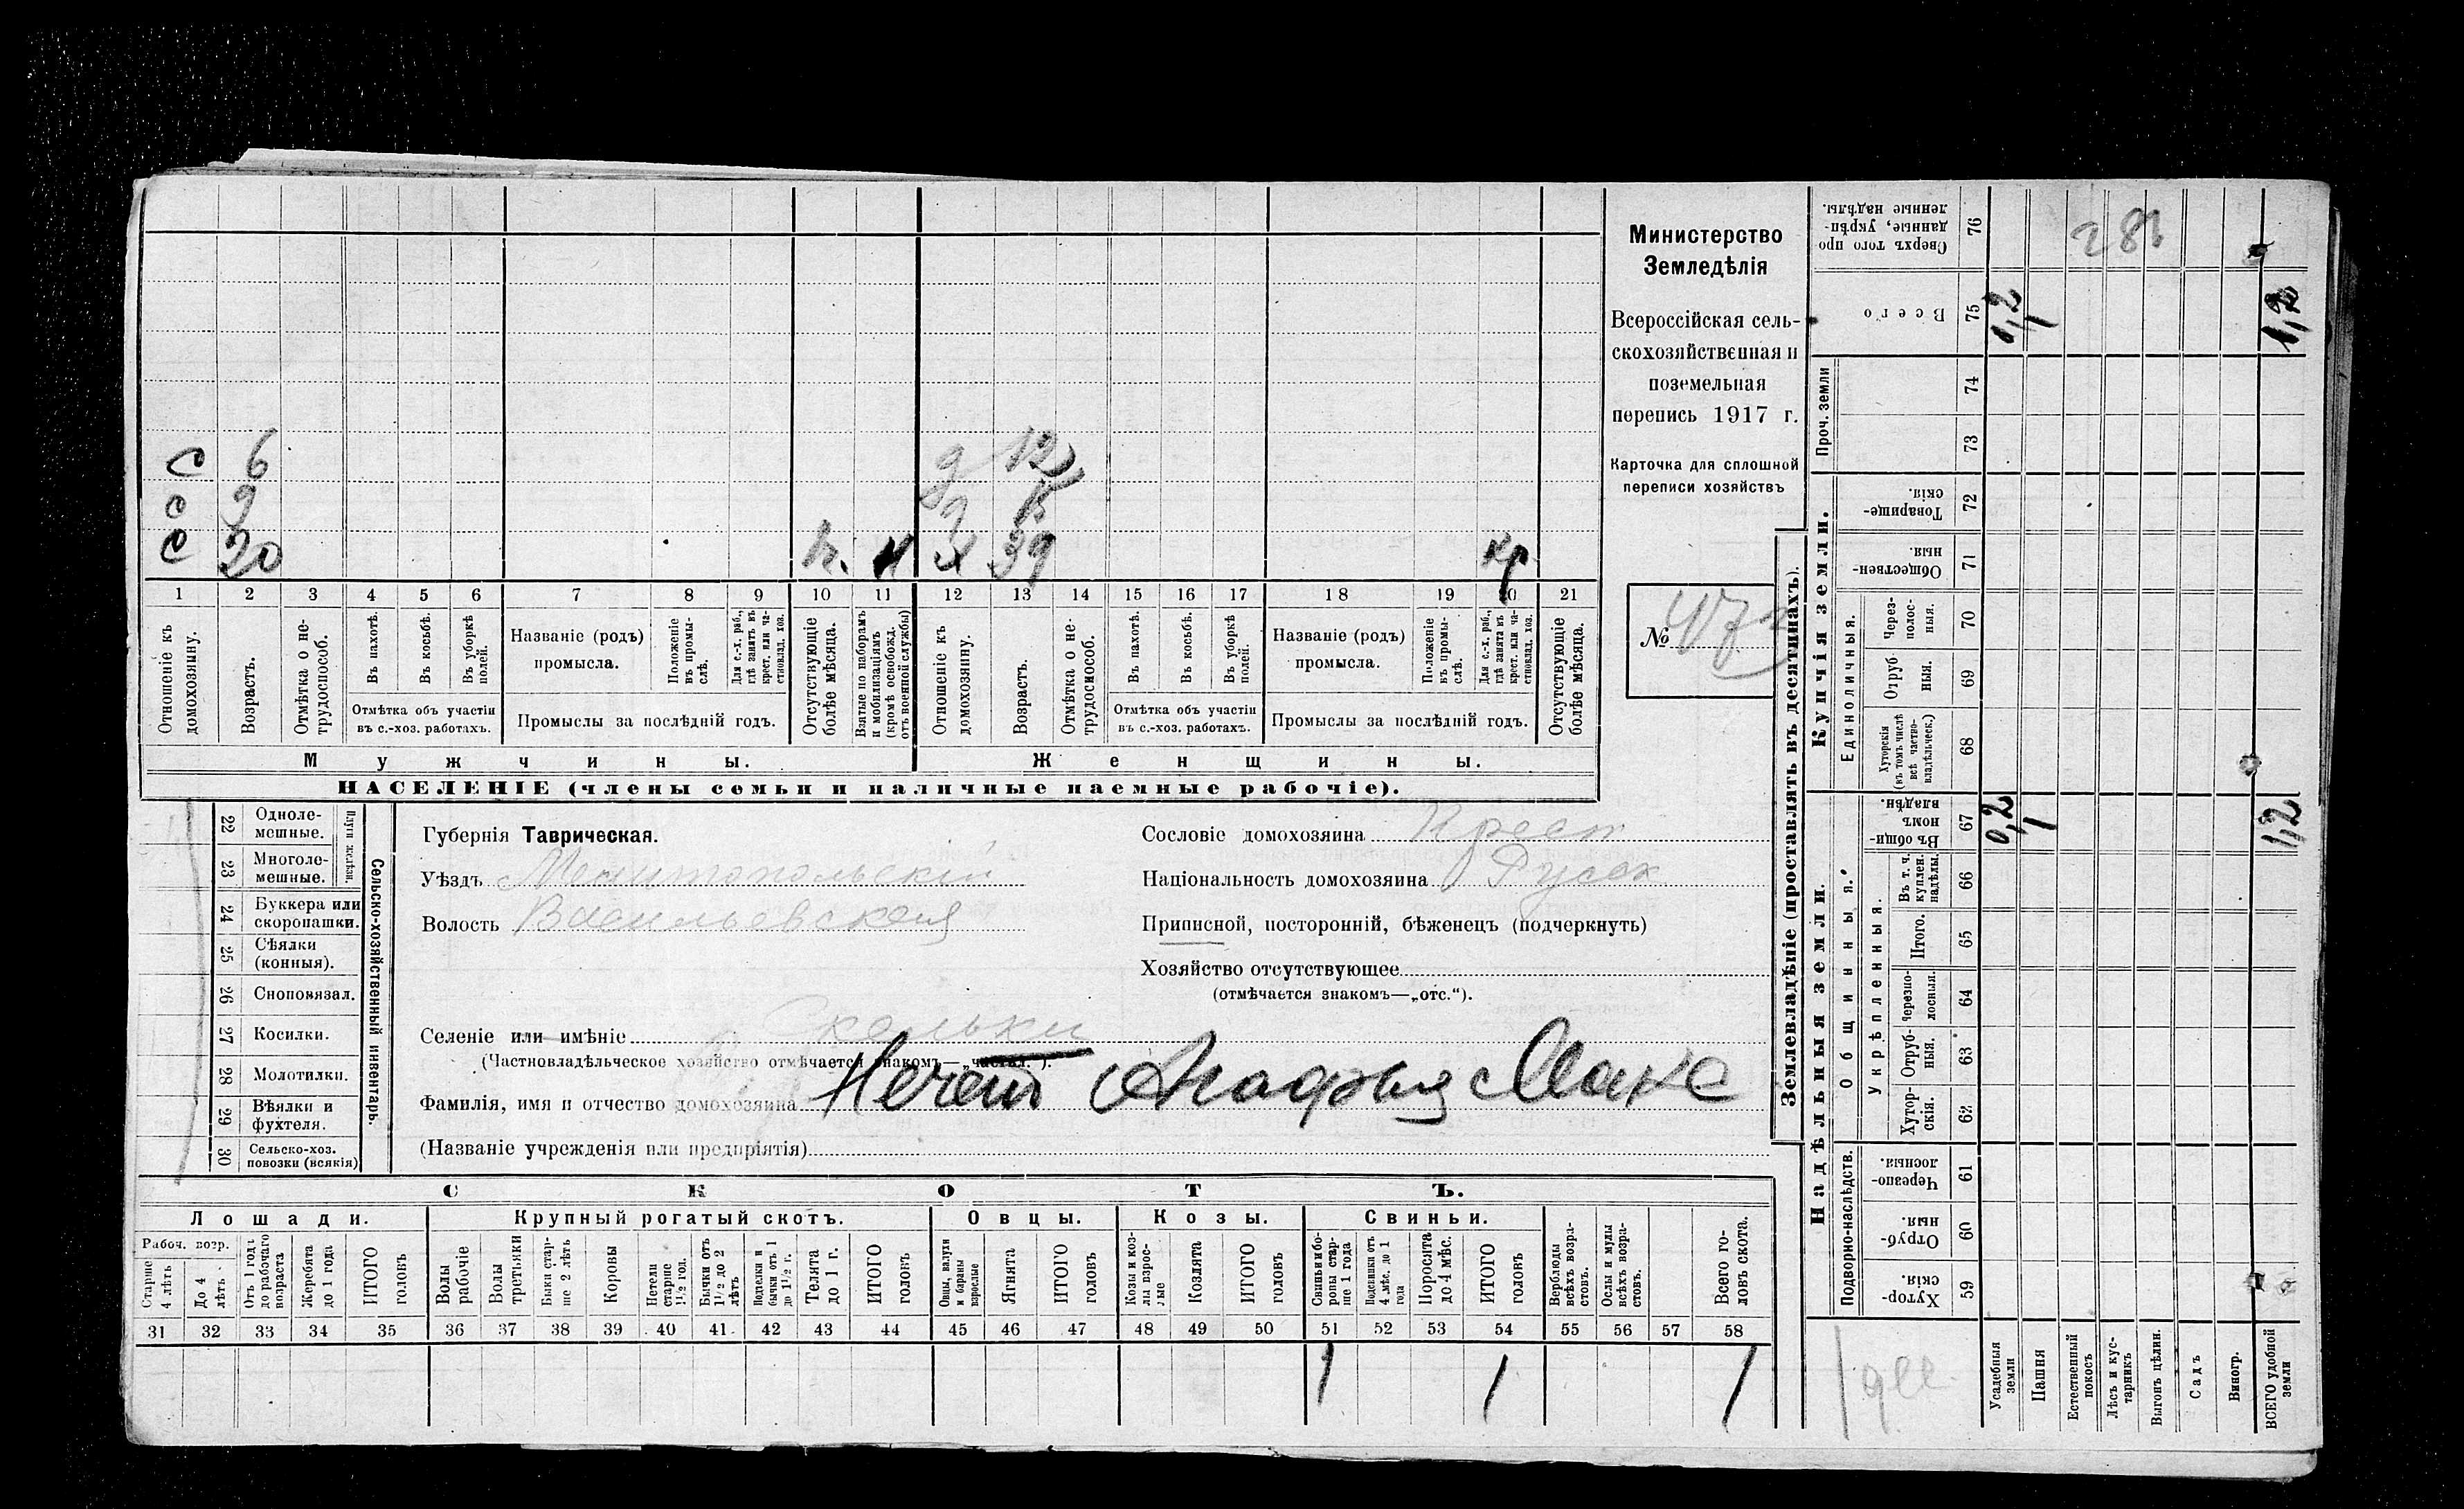 с 6
с 9
с 20 н. М
д 12
д
х 39 кр
1 2 3 4 5 6 7 8 9 10 11 12 13 14 15 16 17 18 19 20 21
Отношеніе къ домохозяину.
Возрастъ.
Отмѣтка о не-трудоспособ.
Въ пахотѣ.
Въ косьбѣ.
Въ уборкѣ полей.
Отмѣтка объ участіи
въ с.-хоз. работахъ.
Названіе (родъ)
промысла.
Положеніе въ промы-слѣ.
Для с.-х. раб., гдѣ занятъ въ крест. или ча-стновлад. хоз.
Промыслы за послѣдній годъ.
Отсутствующіе болѣе мѣсяца.
Взятые по наборамъ и мобилизаціямъ (кромѣ освобожд. отъ военной службы)
Отношеніе къ домохозяину.
Возрастъ.
Отмѣтка о не-трудоспособ.
Въ пахотѣ.
Въ косьбѣ.
Въ уборкѣ полей.
Отмѣтка объ участіи
въ с.-хоз. работахъ.
Названіе (родъ)
промысла.
Положеніе въ промы-слѣ.
Для с.-х. раб., гдѣ занята въ крест. или ча-стновлад. хоз.
Промыслы за послѣдній годъ.
Отсутствующіе болѣе мѣсяца.
Мужчины.
Женщины.
НАСЕЛЕНІЕ (члены семьи и наличные наемные рабочіе).
Министерство
Земледѣлія
Всероссійская сель-
скохозяйственная и
поземельная
перепись 1917 г.
Карточка для сплошной
переписи хозяйствъ
№
22 Одноле-мешные.
23 Многоле-мешные.
Плуги желѣзн.
24 Буккера или скоропашки.
25 Сѣялки (конныя).
26 Сноповязал.
27 Косилки.
28 Молотилки.
29 Вѣялки и фухтеля.
30 Сельско-хоз. повозки (всякія)
Сельско-хозяйственный инвентарь.
Губернія Таврическая.
Уѣздъ Мелитопольскій
Волость Васильевская
Селеніе или имѣніе Скельки
(Частновладѣльческое хозяйство отмѣчается знакомъ—„частвл.").
Фамилія, имя и отчество домохозяина Нечет Агафья Макс
(Названіе учрежденія или предпріятія)
Сословіе домохозяина Крест
Національность домохозяина Русск
Приписной, посторонній, бѣженецъ (подчеркнуть)
Хозяйство отсутствующее
(отмѣчается знакомъ—„отс.").
СКОТЪ.
Лошади. Крупный рогатый скотъ. Овцы. Козы. Свиньи.
Рабоч. возр.
Старше 4 лѣтъ
До 4 лѣтъ
Отъ 1 года до рабочаго возраста
Жеребята до 1 года
ИТОГО головъ
Волы рабочіе
Волы третьяки
Быки стар-ше 2 лѣтъ
Коровы
Нетели старше 1½ год.
Бычки отъ 1½ до 2 лѣтъ
Подтелки и бычки отъ 1 до 1½ г.
Телята до 1 г.
ИТОГО головъ
Овцы, валухи и бараны взрослые
Ягнята
ИТОГО головъ
Козы и коз-лы взрос-лые
Козлята
ИТОГО головъ
Свиньи и бо-ровы стар-ше 1 года
Подсвинки отъ 4 мѣс. до 1 года
Поросята до 4 мѣс.
ИТОГО головъ
Верблюды всѣхъ возра-стовъ.
Ослы и мулы всѣхъ возра-стовъ.
Всего го-ловъ скота.
31 32 33 34 35 36 37 38 39 40 41 42 43 44 45 46 47 48 49 50 51 52 53 54 55 56 57 58
1 1 1
Землевладѣніе (проставлять въ десятинахъ).
Сверхъ того про-данные, укрѣп-ленные надѣлы. 76
281
Всего 75 0,2 1 1,2
Проч. земли
74
73
Купчія земли.
Товарище-скія. 72
Обществен-ныя. 71
Единоличныя.
Через-полос-ныя. 70
Отруб-ныя. 69
Хуторскія (въ томъ числѣ всѣ частно-владѣльческ.) 68
Надѣльныя земли.
Общинныя.
Въ общи-номъ владѣн. 67 0,2 1 1,2
Укрѣпленныя.
Въ т. ч. куплен. надѣлы. 66
Итого. 65
Черезпо-лосныя. 64
Отруб-ныя. 63
Хутор-скія. 62
Подворно-наслѣдств.
Черезпо-лосныя. 61
Отруб-ныя. 60
Хутор-скія. 59
Усадебныя земли
Пашня
Естественный покосъ
Лѣсъ и кус-тарникъ
Выгонъ цѣлин.
Садъ
Виногр.
ВСЕГО удобной земли